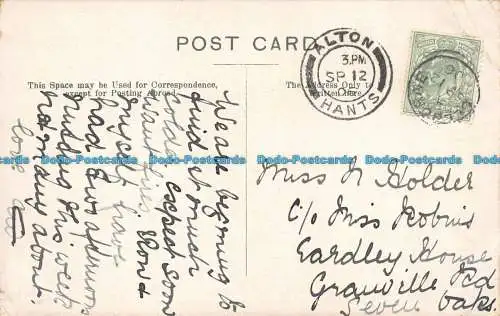 POST CARD
ALTON
3.PM
SP 12
HANTS
This Space may be Used for Correspondence,
except for Posting Abroad.
The Address Only to
Written here
We are beginning to
find it much
colder & expect soon
want fires. Ron &
myself have
had two afternoons
nutting this week
not many about.
love
Miss N Holder
C/o Miss Robins
Eardley House
Granville Rd
Seven Oaks.
Dodo-Postcards Dodo-Postcards Dodo-Postcards Dodo-Postcards Dodo-Postcards